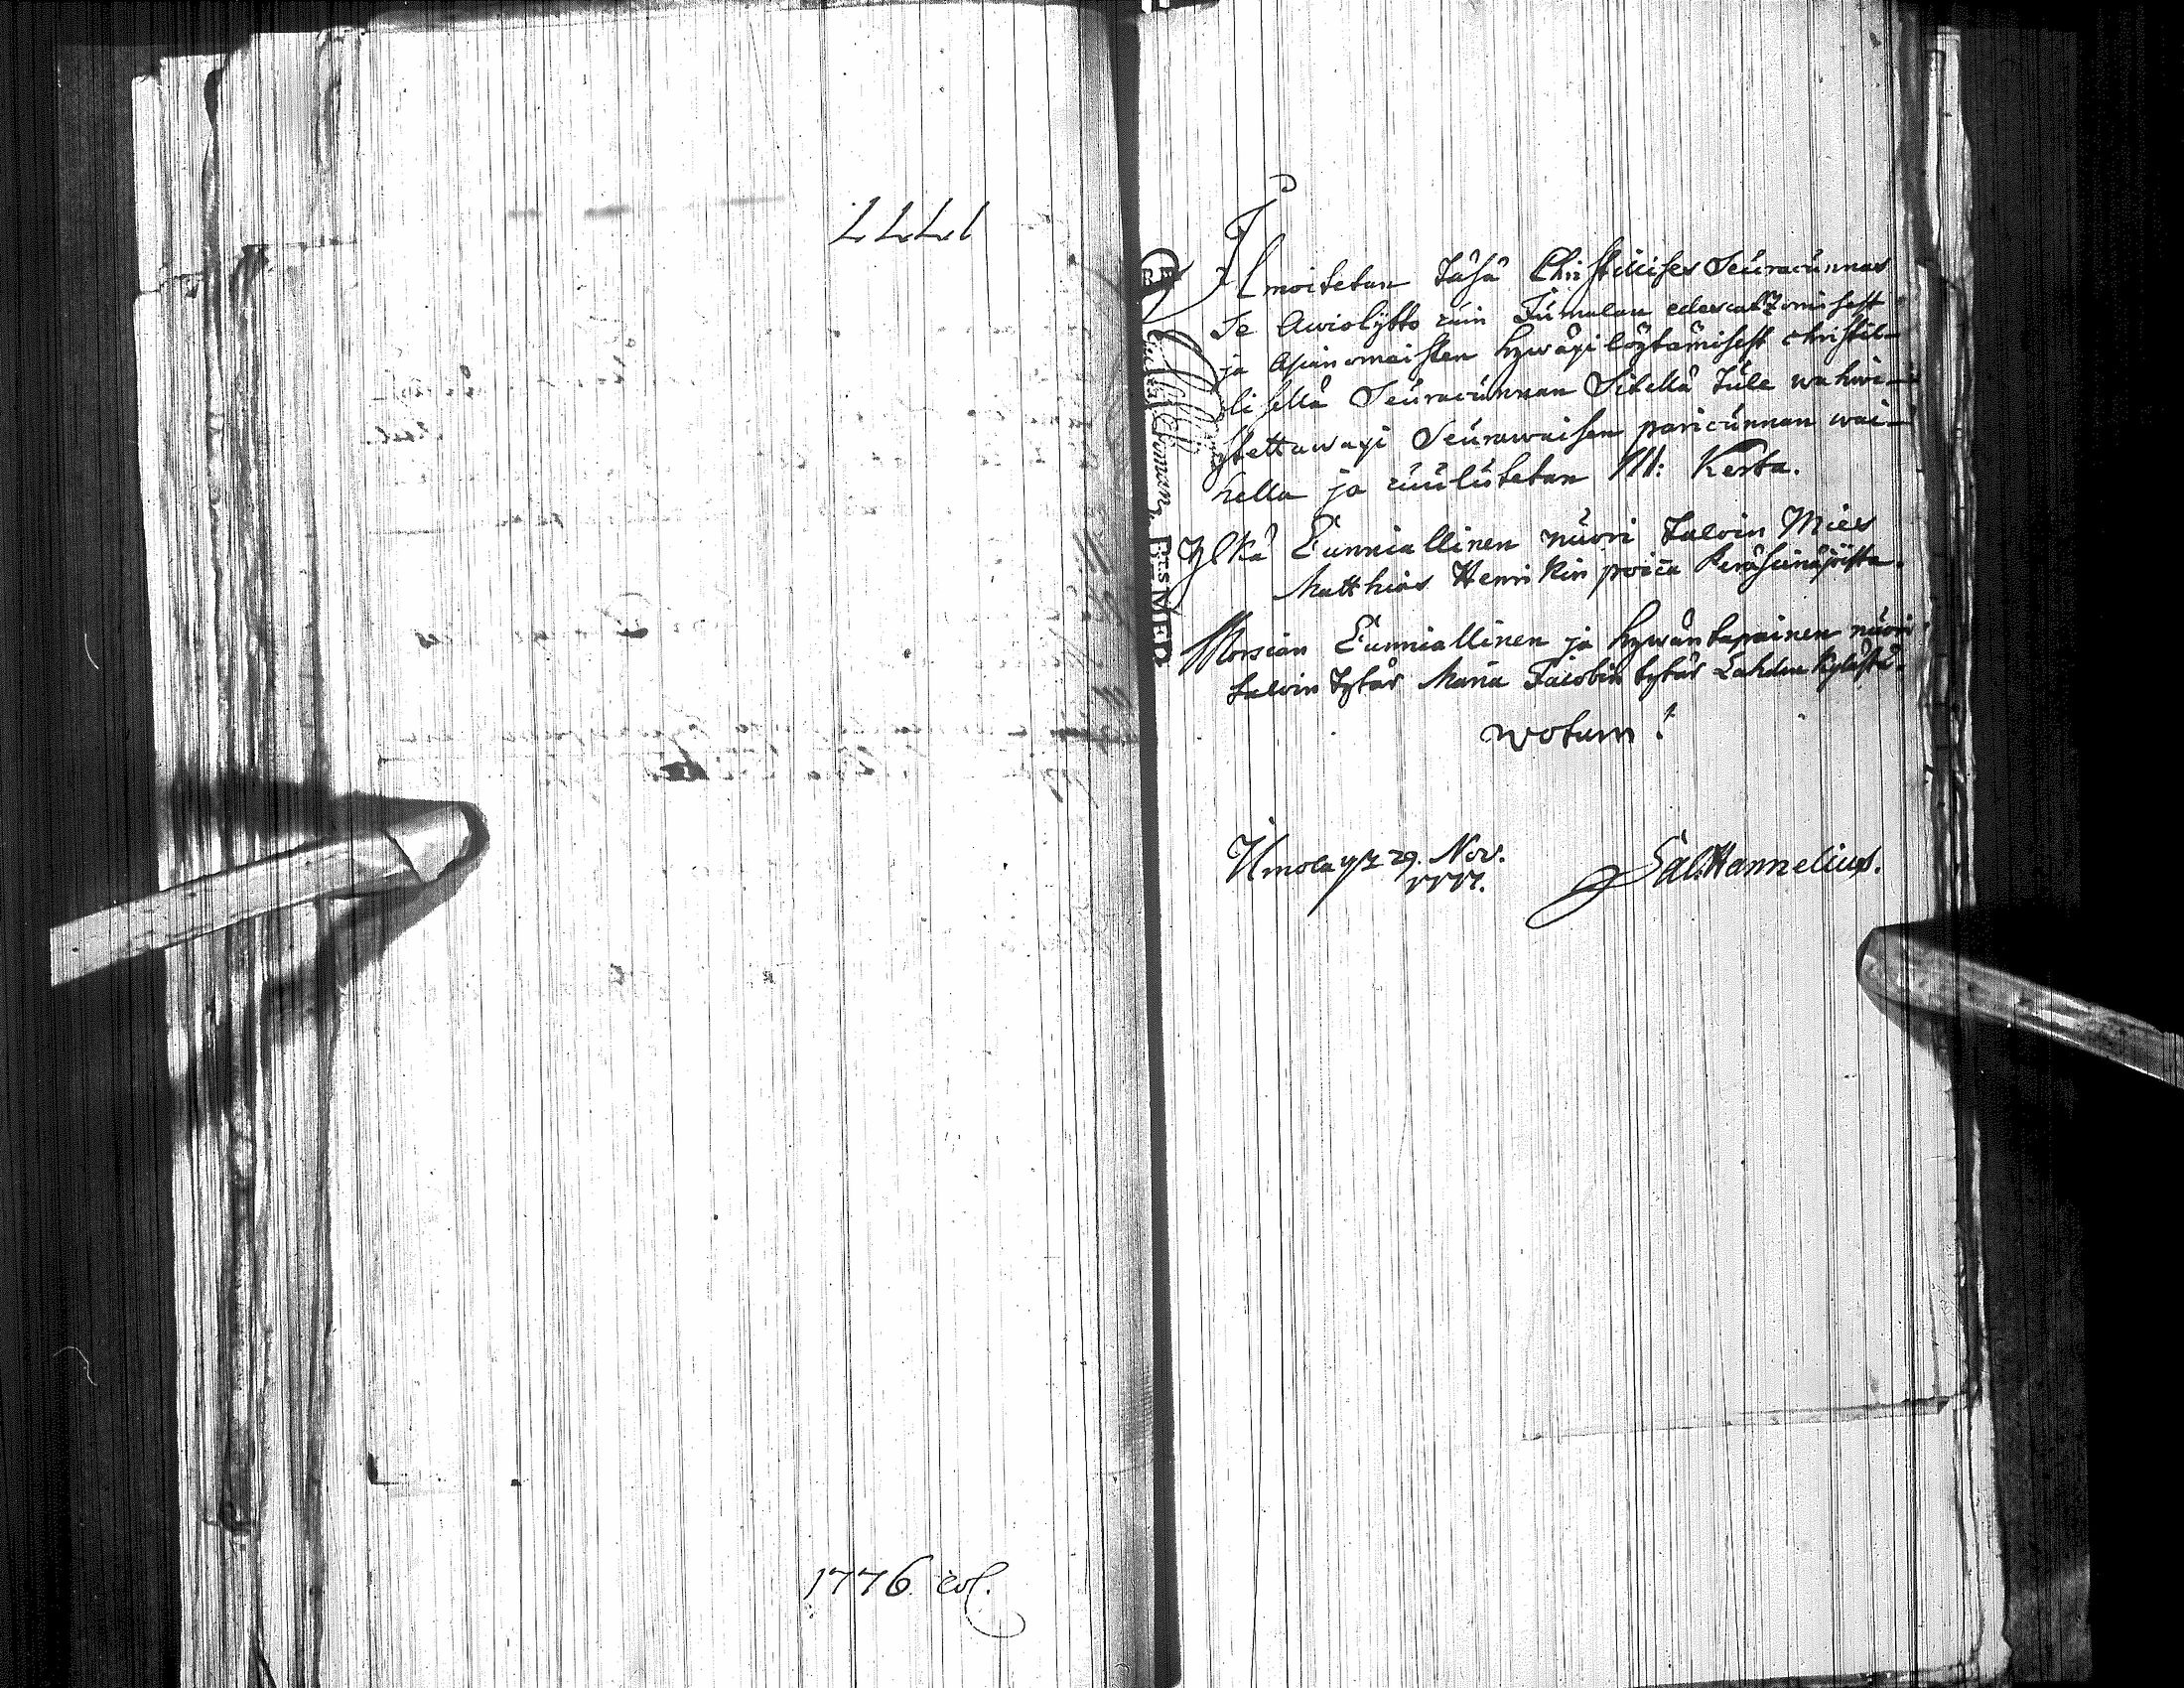 1777
1776. col.
Ilmoitetan täsä Christilises Seuracunnas
Se Awiolÿtto cuin Jumalan edescatzomisest
ja Asianomaisten hywäxi löytämisest christil-
lisellä Seuracunnan Sitellä tule wahwi-
stettawaxi Seurawaisen paricunnan wai-
hella ja cuulutetan III: Kerta.
Ylkä Cunniallinen nuori taloin Mies
Matthias Henrikin poica Peräseinäjoësta.
Morsian Cunniallinen ja hywäntapainen nuori
taloin tytär Maria Jacobin tytär Lahden Kyläst.
wotum!
Ilmola 29. Nov.
1777.
Sal. Hannelius.